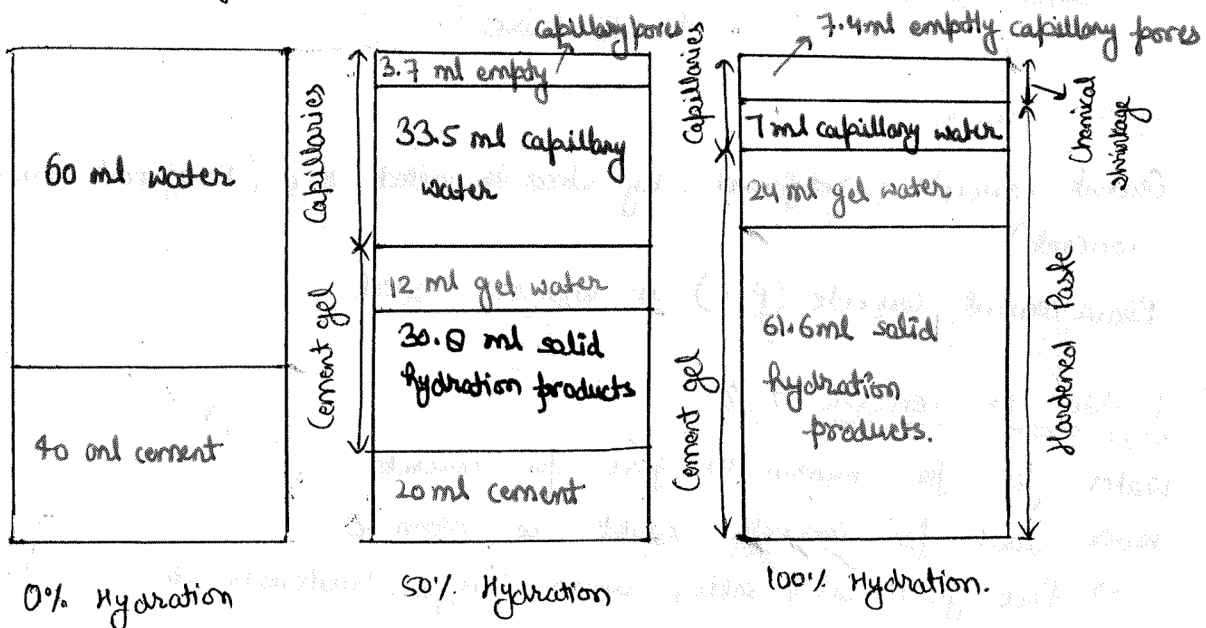 60 ml water
40 ml cement
0% Hydration
Capillaries
Cement gel
capillary pores
3.7 ml empty
33.5 ml capillary
water
12 ml gel water
30.8 ml solid
hydration products
20 ml cement
50% Hydration
Capillaries
Cement gel
7.4ml empty capillary pores
7ml capillary water
24 ml gel water
61.6ml solid
hydration
products.
100% Hydration.
Chemical
shrinkage
Hardened Paste